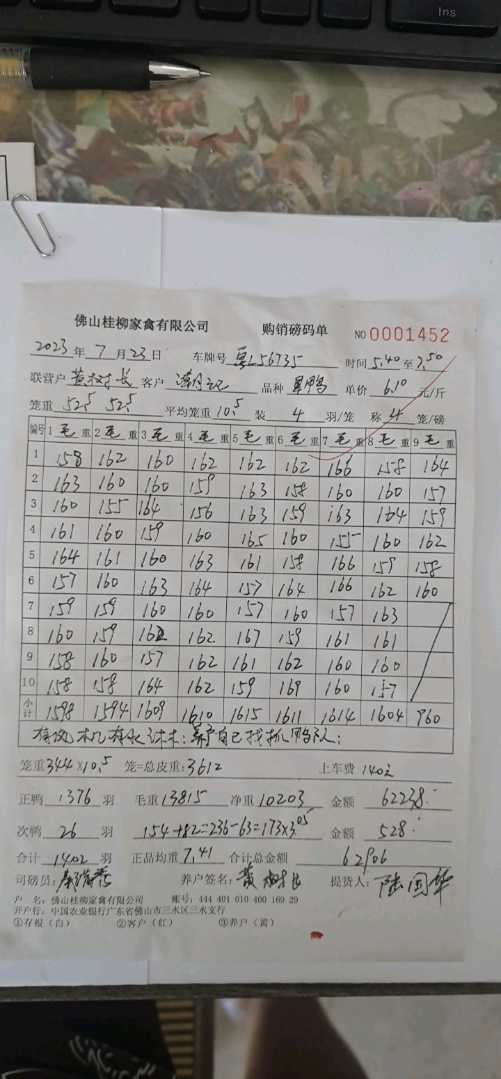 Ins
佛山桂柳家禽有限公司 购销磅码单 NO 0001452
2023 年 7 月 23 日 车牌号 粤L56735 时间 5.40 至 7.50
联营户 黄 长 客户 品种 单价 6.10 元/斤
笼重 52.5 52.5 平均笼重 10.5 装 4 羽/笼 称 4 笼/磅
编号 1 毛 重 2 毛 重 3 毛 重 4 毛 重 5 毛 重 6 毛 重 7 毛 重 8 毛 重 9 毛 重
1 158 162 160 162 162 162 166 158 164
2 163 160 160 159 163 158 160 160 157
3 160 155 164 156 163 159 163 164 159
4 161 160 159 160 165 160 155 160 162
5 164 161 160 163 161 158 166 159 158
6 157 160 163 164 157 164 166 162 160
7 159 159 160 160 157 160 157 163
8 160 159 162 162 167 159 161 161
9 158 160 157 162 161 162 160 160
10 158 158 164 162 159 169 160 157
小计 1598 1594 1609 1610 1615 1611 1614 1604 960
自己找抓鸭
笼重 344 x 10.5 笼=总皮重: 3612 上车费 140元
正鸭 1376 羽 毛重 13815 净重 10203 金额 62238.
次鸭 26 羽 154+82=236-63=173x3.05 金额 528.
合计 1402 羽 正品均重 7.41 合计总金额 62906
司磅员: 养户签名: 黄 长 提货人: 陆国华
户 名: 佛山桂柳家禽有限公司 账号: 444 401 010 400 169 29
开户行: 中国农业银行广东省佛山市三水区三水支行
①存根（白） ②客户（红） ③养户（黄）